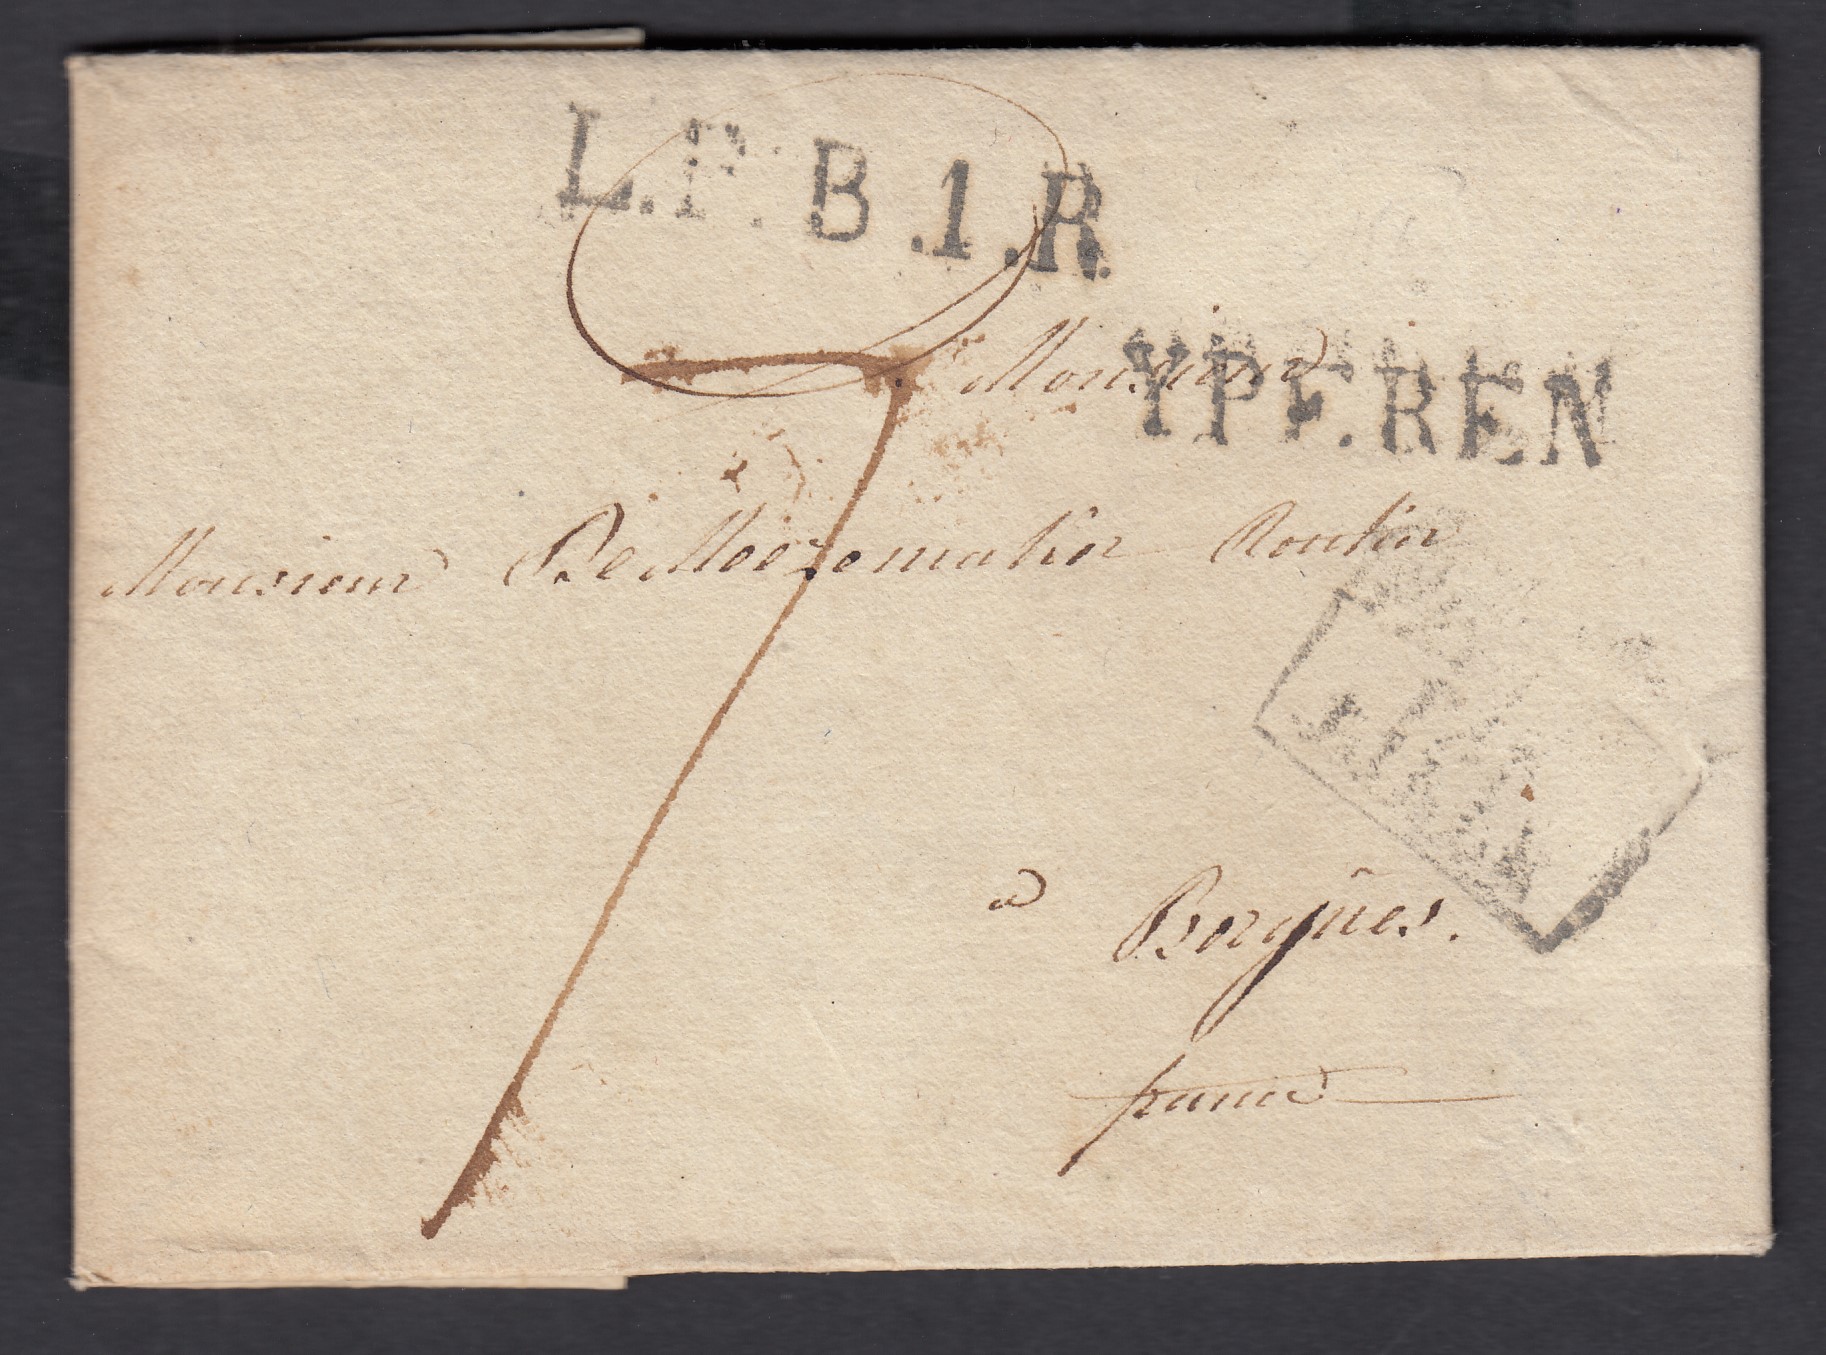 L.P.B.1.R.
Monsieur
YPEREN
Monsieur De Meezemaker Rentier
7
a Bergues.
france